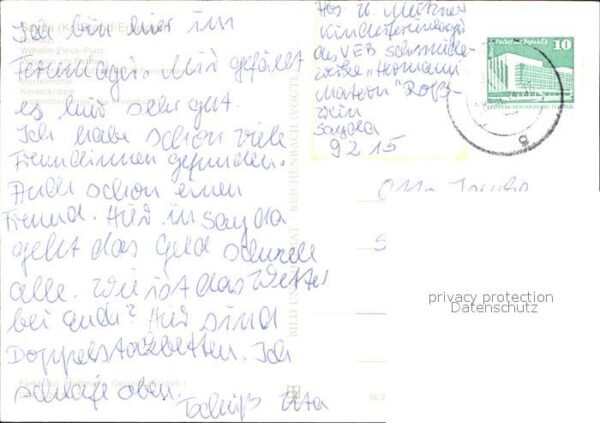 Ich bin hier im
Ferienlager. Mir gefällt
es hir sehr gut.
Ich habe schon viele
Freundinnen gefunden.
Auch schon einen
Freund. Hier in Sayda
geht das Geld schnell
alle. Wie ist das Wetter
bei euch? Hier sind
Doppelstockbetten. Ich
schlafe oben.
Tschüß Uta
Abs. U. 
Kinderferienlager
des VEB Schmiede-
werke "Hermann
Matern" Roß-
wein
Sayda
9215
10
Wilhelm-Pieck-Platz
Kinderkrippe
BILD UND HEIMAT REICHENBACH (VOGTL)
privacy protection
Datenschutz